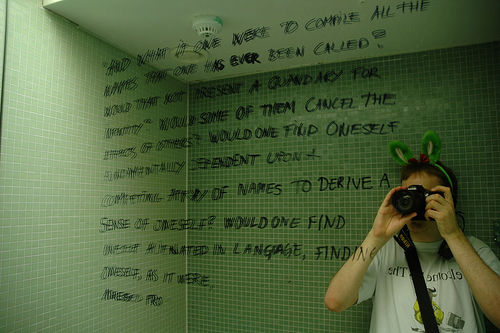 "AND WHAT IF ONE WERE TO COMPILE ALL THE
NAMES THAT ONE HAS EVER BEEN CALLED?
WOULD THAT NOT PRESENT A QUANDARY FOR
IDENTITY? WOULD SOME OF THEM CANCEL THE
EFFECTS OF OTHERS? WOULD ONE FIND ONESELF
FUNDAMENTALLY DEPENDENT UPON A
COMPETING ARRAY OF NAMES TO DERIVE A
SENSE OF ONESELF? WOULD ONE FIND
ONESELF ALIENATED IN LANGUAGE, FINDING
ONESELF, AS IT WERE
FROM
The